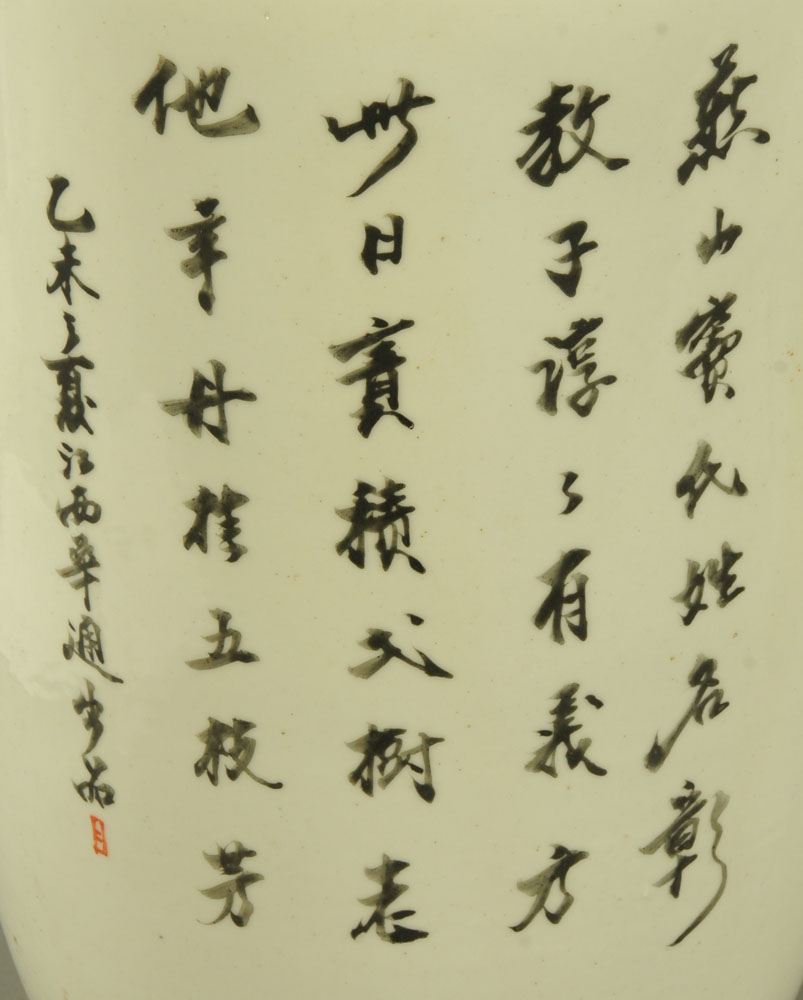 燕山竇氏姓名彰
教子諄々有義方
此日積樹
他年丹桂五枝芳
乙未之夏江西出品